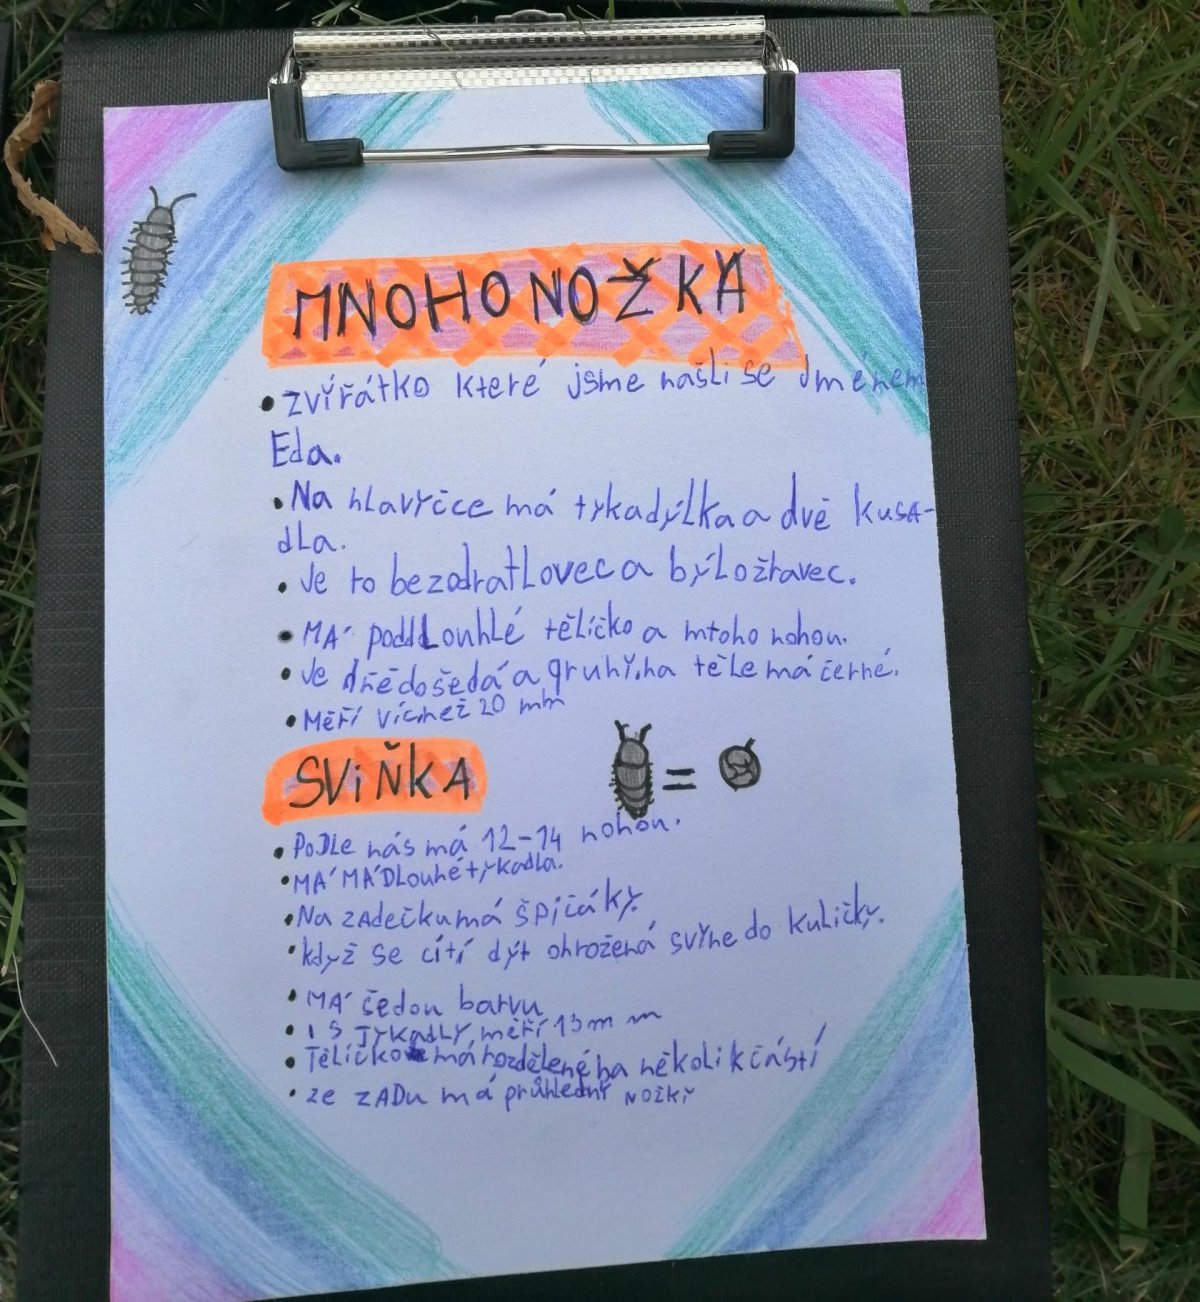 MNOHONOŽKA
• Zvířátko které jsme našli se jménem
Eda.
• Na hlavyčce má tykadýlka a dvě kusa-
dla.
• Je to bezodratlovec a býložravec.
• MÁ poddLouhlé tělíčko a mtoho nohou.
• Je hnědošedá a gruhy, na těle má černé.
• Měří víc než 20 mm
SVIŇKA
=
• PoDle nás má 12-14 nohou.
• MÁ MÁ DLouhé tykadla.
• Na zadečku má špičáky.
• když se cítí dýt ohrožená svyne do kuličky.
• MÁ šedou barvu
• I S TYKADLY, měří 13 mm
• Tělíčko má rozdělené na několik částí
• ze zADu má průhledný nožky